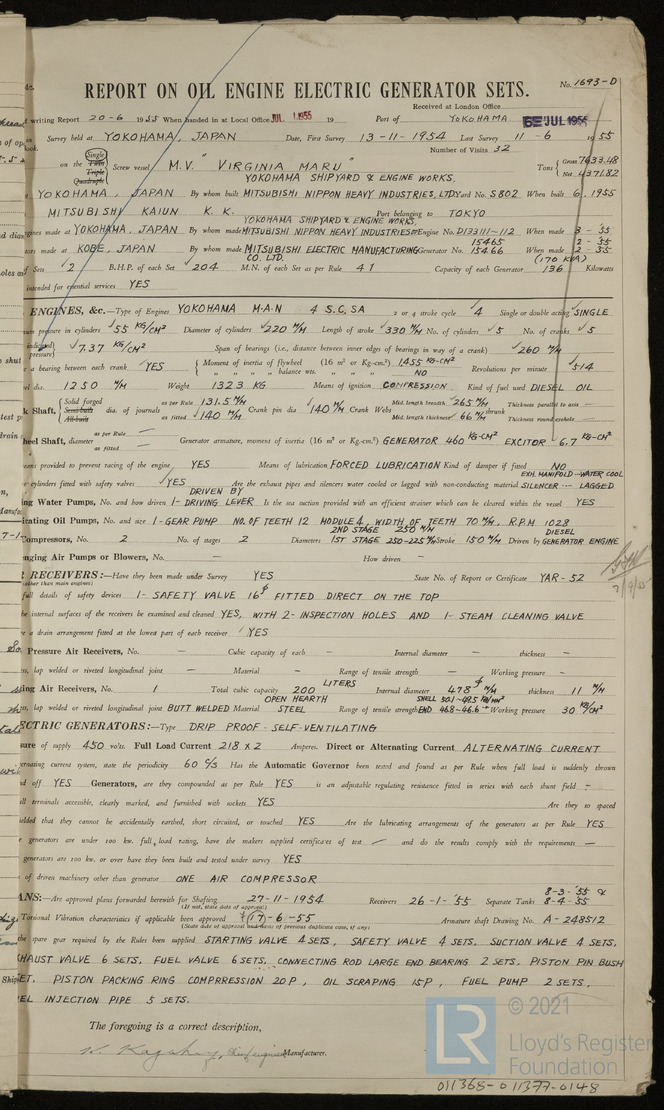 REPORT ON OIL ENGINE ELECTRIC GENERATOR SETS. No. 1693-D
Received at London Office
writing Report 20-6 1955 When handed in at Local Office JUL 1955 19 Port of YOKOHAMA JUL 1955
Survey held at YOKOHAMA, JAPAN Date, First Survey 13-11-1954 Last Survey 11-6 1955
Number of Visits 32
on the Single Twin Triple Quadruple Screw vessel M.V. "VIRGINIA MARU" Tons Gross 7633.48 Net 4371.82
YOKOHAMA SHIPYARD & ENGINE WORKS.
YOKOHAMA, JAPAN By whom built MITSUBISHI NIPPON HEAVY INDUSTRIES, LTD. Yard No. S802 When built 6, 1955
MITSUBISHI KAIUN K. K. Port belonging to TOKYO
YOKOHAMA SHIPYARD & ENGINE WORKS.
made at YOKOHAMA, JAPAN By whom made MITSUBISHI NIPPON HEAVY INDUSTRIES Engine No. D133111~112 When made 3-'55
made at KOBE, JAPAN By whom made MITSUBISHI ELECTRIC MANUFACTURING CO. LTD. Generator No. 15465 15466 When made 2-'55 2-'55
Sets 2 B.H.P. of each Set 204 M.N. of each Set as per Rule 41 Capacity of each Generator 136 (170 KVA) Kilowatts
intended for essential services YES
ENGINES, &c.—Type of Engines YOKOHAMA M·A·N 4 S.C. SA 2 or 4 stroke cycle 4 Single or double acting SINGLE
pressure in cylinders 55 KG/CM² Diameter of cylinders 220 M/M Length of stroke 330 M/M No. of cylinders 5 No. of cranks 5
pressure) 7.37 KG/CM² Span of bearings (i.e., distance between inner edges of bearings in way of a crank) 260 M/M
a bearing between each crank YES Moment of inertia of flywheel (16 m² or Kg.-cm.²) 1455 KG-CM² Revolutions per minute 514
" " " balance wts. " " " NO
dia. 1250 M/M Weight 1323 KG Means of ignition COMPRESSION Kind of fuel used DIESEL OIL
Shaft, Solid forged Semi-built All-built dia. of journals as per Rule 131.5 M/M as fitted 140 M/M Crank pin dia 140 M/M Crank Webs Mid. length breadth 265 M/M Mid. length thickness 66 M/M shrunk Thickness parallel to axis — Thickness round eyehole —
Shaft, diameter as per Rule — as fitted — Generator armature, moment of inertia (16 m² or Kg.-cm.²) GENERATOR 460 KG-CM² EXCITOR 6.7 KG-CM²
means provided to prevent racing of the engine YES Means of lubrication FORCED LUBRICATION Kind of damper if fitted NO
cylinders fitted with safety valves YES Are the exhaust pipes and silencers water cooled or lagged with non-conducting material EXH. MANIFOLD—WATER COOL SILENCER — LAGGED
Water Pumps, No. and how driven 1- DRIVEN BY DRIVING LEVER Is the sea suction provided with an efficient strainer which can be cleared within the vessel YES
Oil Pumps, No. and size 1-GEAR PUMP NO. OF TEETH 12 MODULE 4, WIDTH OF TEETH 70 M/M, R.P.M 1028
Compressors, No. 2 No. of stages 2 Diameters 2ND STAGE 250 M/M 1ST STAGE 250-225 M/M Stroke 150 M/M Driven by DIESEL GENERATOR ENGINE
Air Pumps or Blowers, No. — How driven —
RECEIVERS:—Have they been made under Survey YES State No. of Report or Certificate YAR-52
(other than main engines)
full details of safety devices 1- SAFETY VALVE 16∮ FITTED DIRECT ON THE TOP
the internal surfaces of the receivers be examined and cleaned YES, WITH 2-INSPECTION HOLES AND 1-STEAM CLEANING VALVE
a drain arrangement fitted at the lowest part of each receiver YES
Pressure Air Receivers, No. — Cubic capacity of each — Internal diameter — thickness —
lap welded or riveted longitudinal joint — Material — Range of tensile strength — Working pressure —
Air Receivers, No. 1 Total cubic capacity 200 LITERS Internal diameter 478∮ M/M thickness 11 M/M
lap welded or riveted longitudinal joint BUTT WELDED Material OPEN HEARTH STEEL Range of tensile strength SHELL 50.1-49.5 KG/MM² END 46.8-46.6 " Working pressure 30 KG/CM²
ELECTRIC GENERATORS:—Type DRIP PROOF-SELF-VENTILATING
of supply 450 volts. Full Load Current 218 X 2 Amperes. Direct or Alternating Current ALTERNATING CURRENT
current system, state the periodicity 60 C/S Has the Automatic Governor been tested and found as per Rule when full load is suddenly thrown
off YES Generators, are they compounded as per Rule YES is an adjustable regulating resistance fitted in series with each shunt field —
all terminals accessible, clearly marked, and furnished with sockets YES Are they so spaced
that they cannot be accidentally earthed, short circuited, or touched YES Are the lubricating arrangements of the generators as per Rule YES
generators are under 100 kw. full load rating, have the makers supplied certificates of test — and do the results comply with the requirements —
generators are 100 kw. or over have they been built and tested under survey YES
of driven machinery other than generator ONE AIR COMPRESSOR
PLANS:—Are approved plans forwarded herewith for Shafting 27-11-1954 Receivers 26-1-'55 Separate Tanks 8-3-'55 & 8-4-'55
(If not, state date of approval)
Torsional Vibration characteristics if applicable been approved (17)-6-55 Armature shaft Drawing No. A-248512
(State date of approval and dates of previous duplicate case, if any)
the spare gear required by the Rules been supplied STARTING VALVE 4 SETS, SAFETY VALVE 4 SETS, SUCTION VALVE 4 SETS,
EXHAUST VALVE 6 SETS, FUEL VALVE 6 SETS, CONNECTING ROD LARGE END BEARING 2 SETS, PISTON PIN BUSH
SET. PISTON PACKING RING COMPRRESSION 20P, OIL SCRAPING 15P, FUEL PUMP 2 SETS,
FUEL INJECTION PIPE 5 SETS.
The foregoing is a correct description,
Manufacturer.
LR © 2021
Lloyd's Register
Foundation
011368-011377-0148